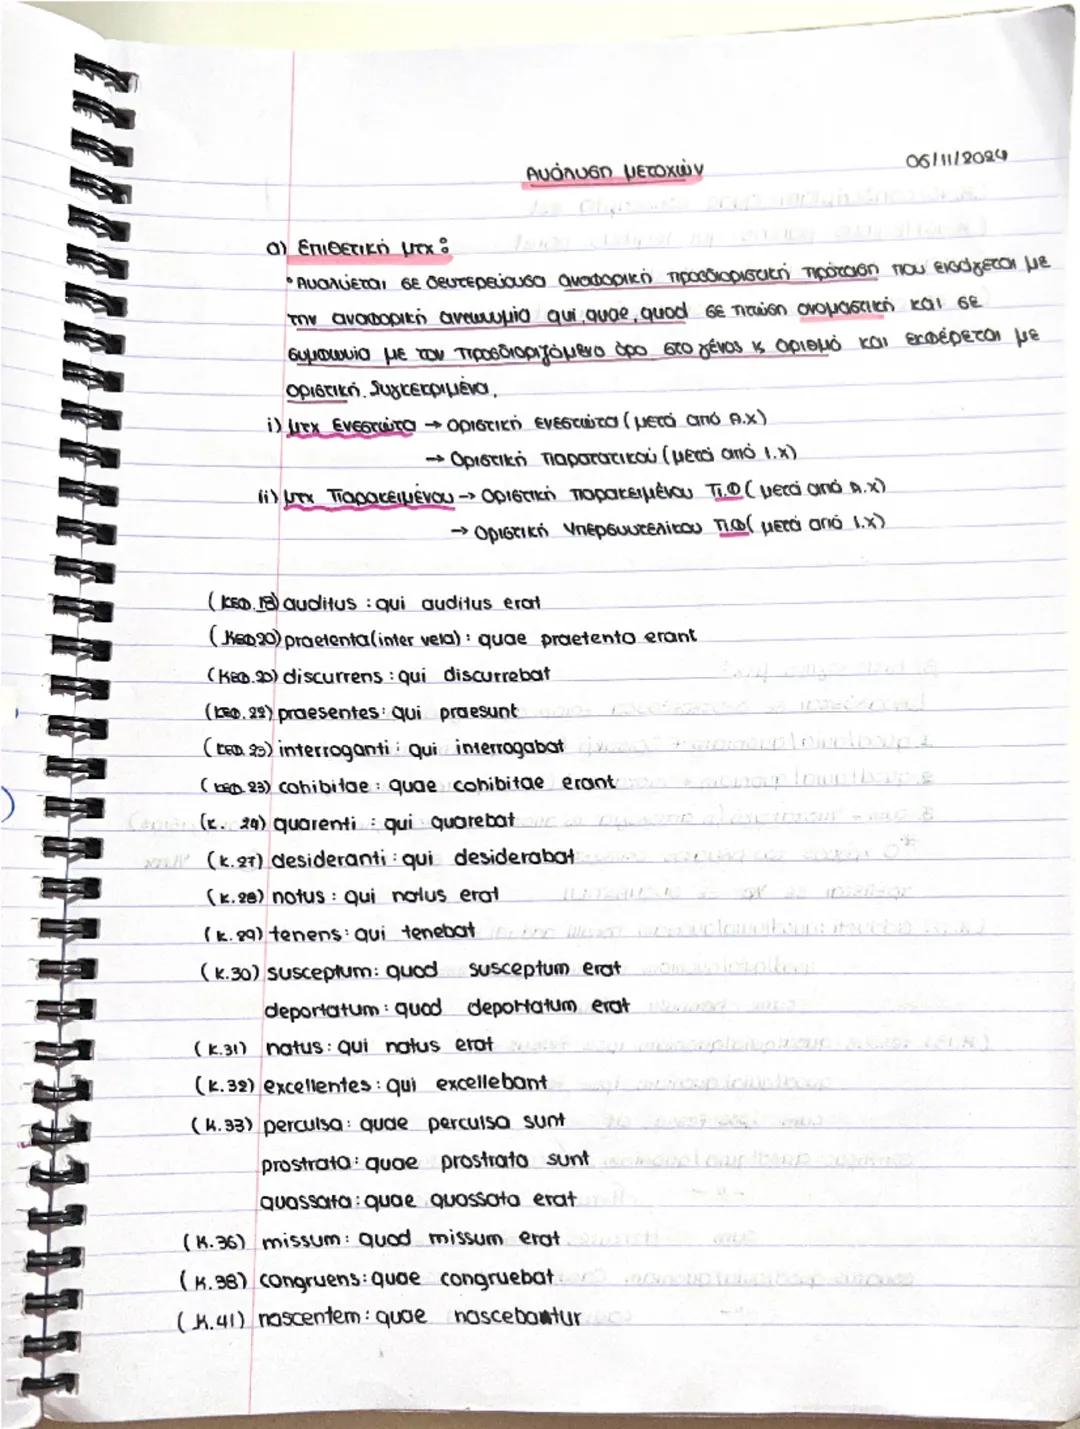 Ανάλυση μετοχών
06/11/2024
α) Επιθετική μτχ:
• Αναλύεται σε δευτερεύουσα αναφορική προσδιοριστική πρόταση που εισάγεται με
την αναφορική αντωνυμία qui, quae, quod σε πτώση ονομαστική και σε
συμφωνία με τον προσδιοριζόμενο όρο στο γένος κ αριθμό και εκφέρεται με
οριστική. Συγκεκριμένα,
i) μτχ Ενεστώτα → Οριστική ενεστώτα (μετά από Α.Χ)
→ Οριστική παρατατικού (μετά από Ι.Χ)
ii) μτχ Παρακειμένου → Οριστική παρακειμένου Π.Φ (μετά από Α.Χ)
→ Οριστική Υπερσυντελίκου Π.Φ (μετά από Ι.Χ)
(κεφ. 18) auditus : qui auditus erat
(κεφ 20) praetenta (inter vela) : quae praetenta erant
(κεφ. 20) discurrens : qui discurrebat
(κεφ. 22) praesentes : qui praesunt
(κεφ. 23) interroganti : qui interrogabat
(κεφ. 23) cohibitae : quae cohibitae erant
(κ. 24) quarenti : qui quarebat
(κ. 27) desideranti : qui desiderabat
(κ. 28) notus : qui notus erat
(κ. 29) tenens : qui tenebat
(κ. 30) susceptum : quod susceptum erat
deportatum : quod deportatum erat
(κ. 31) natus : qui natus erat
(κ. 32) excellentes : qui excellebant
(κ. 33) perculsa : quae perculsa sunt
prostrata : quae prostrata sunt
quassata : quae quassata erat
(κ. 36) missum : quod missum erat
(κ. 38) congruens : quae congruebat
(κ. 41) nascentem : quae nascebantur